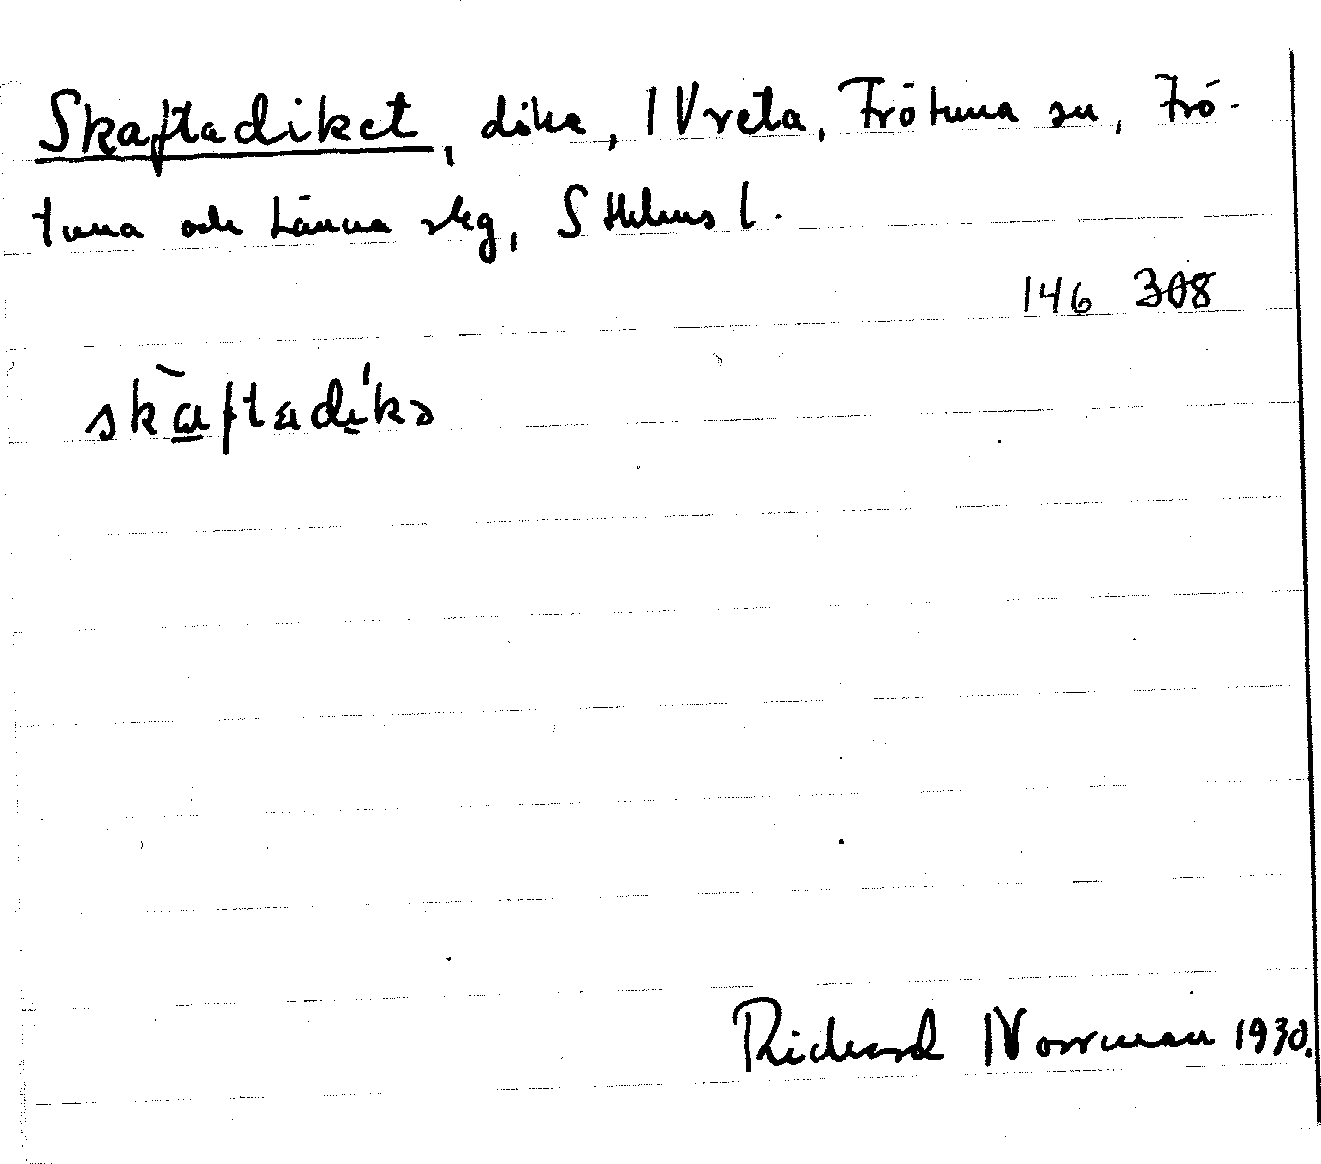 Skaftadiket, dike, I Vreta, Frötuna sn, Frö-
tuna och Länna skg, S Helens l.
146 308
skaftadikə
Richard Norrman 1930.